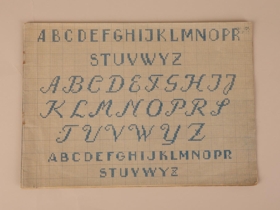 ABCDEFGHIJKLMNOPR
STUVWYZ
ABCDEFGHIJ
KLMNOPRS
TUVWYZ
ABCDEFGHIJKLMNOPR
STUVWYZ